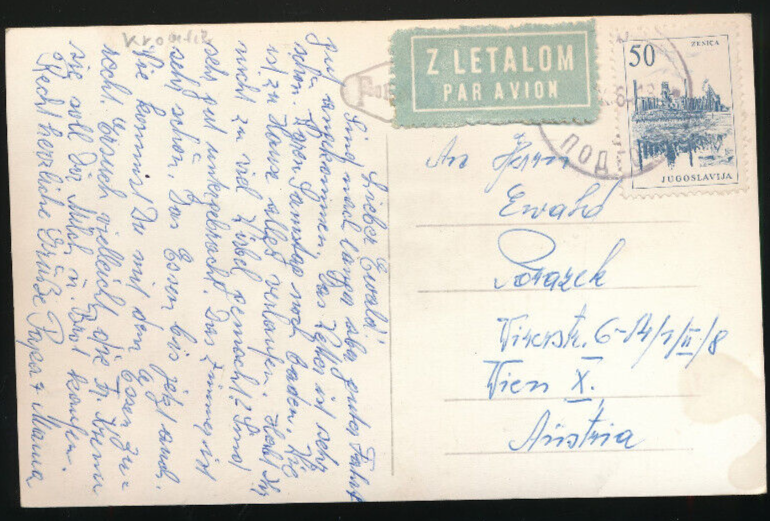 Kroatie
Z LETALOM
PAR AVION
50
ZENICA
JUGOSLAVIJA
ПОД
Lieber Ewald!
Sind nach langer aber guter Fahrt
gut angekommen. Das Wetter ist sehr
schön. Waren Samstag noch baden. Ist
zu Hause alles verlaufen. Habt Ihr
nicht zu viel gemacht? Sind
sehr gut untergebracht. Das Zimmer ist
sehr schön. Das Essen bis jetzt auch.
Wie kommst Du mit dem Essen zu-
recht. Ersuch vielleicht die Fr.
sie soll Dir Milch u. Brot kaufen.
Recht herzliche Grüße Papa + Mama
An Herrn
Ewald
Porazek
6-14/1/II/8
Wien X.
Austria